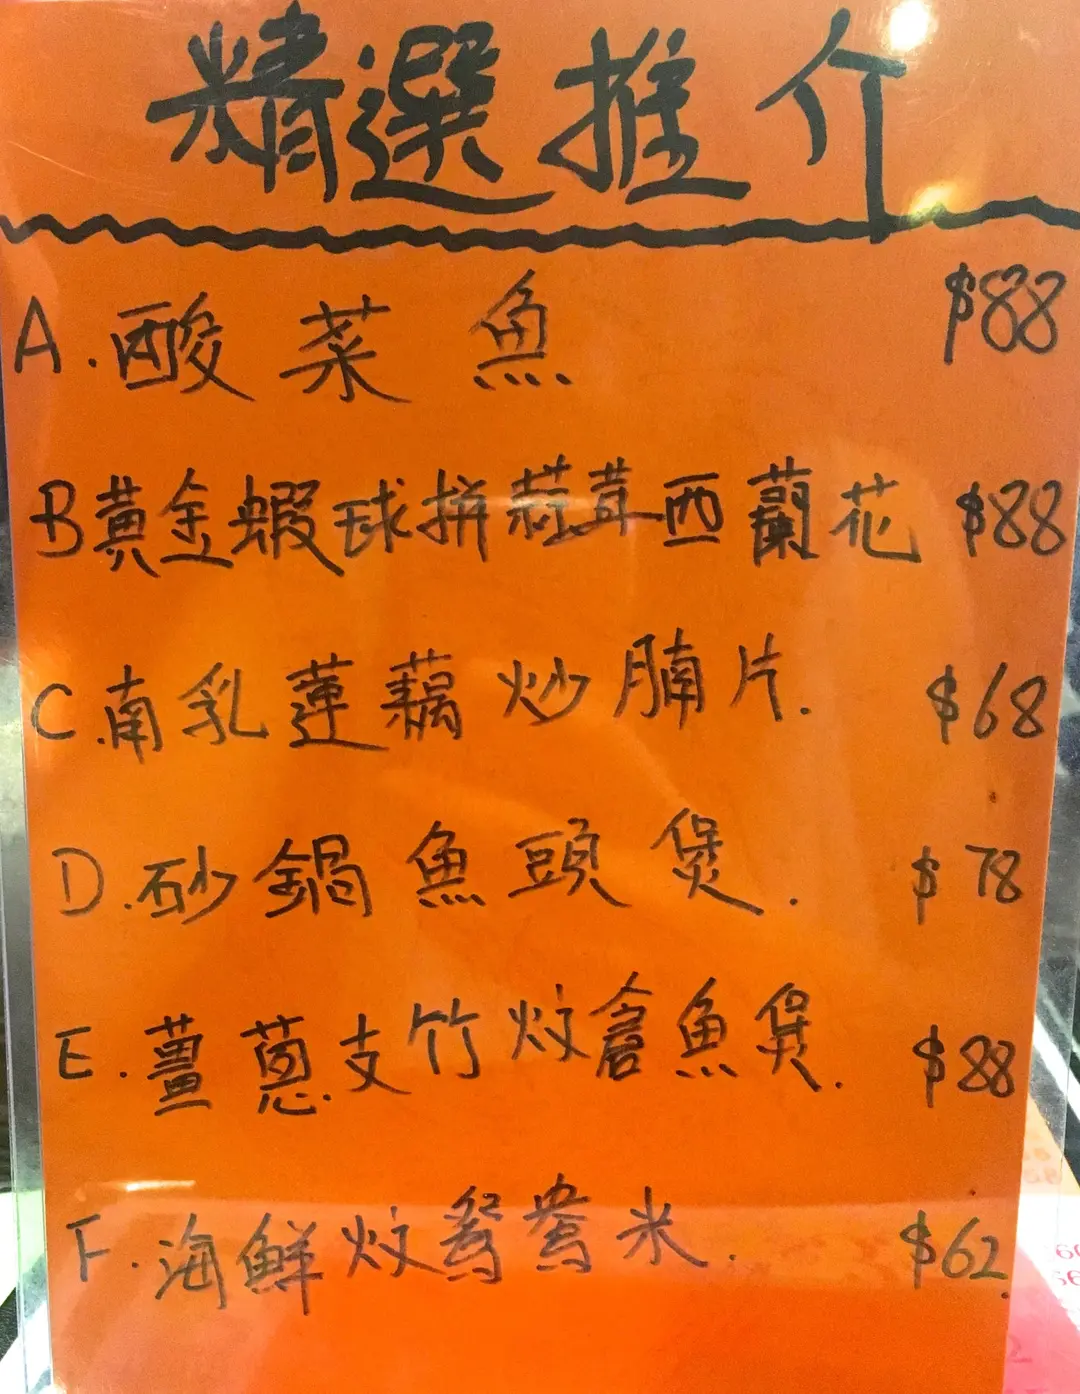 精選推介
A.酸菜魚 $88
B黃金蝦球拼蒜茸西蘭花 $88
C.南乳蓮藕炒腩片. $68
D.砂鍋魚頭煲. $78
E.薑蔥支竹炆倉魚煲. $88
F.海鮮炆鴛鴦米. $62